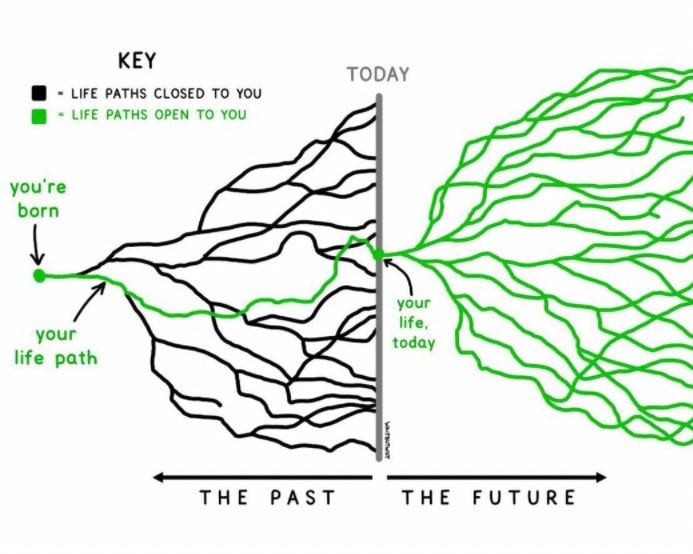 KEY
= LIFE PATHS CLOSED TO YOU
= LIFE PATHS OPEN TO YOU
TODAY
you're
born
your
life path
your
life,
today
WAITBUTWHY
THE PAST
THE FUTURE